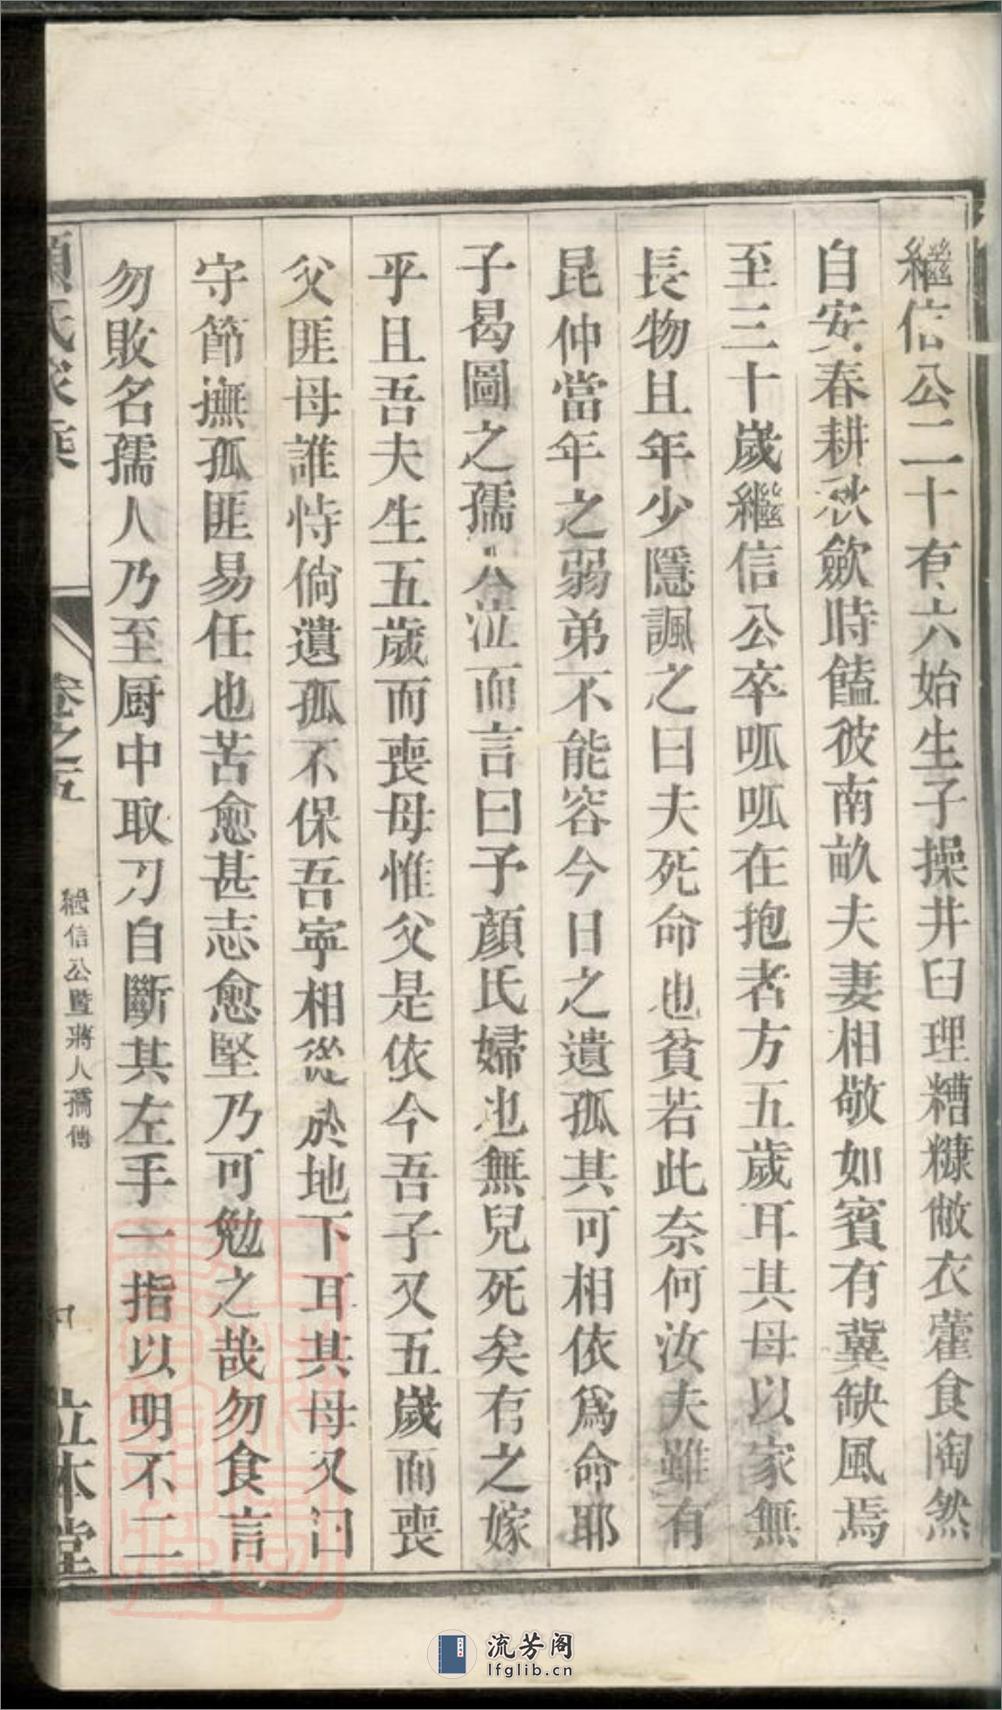 繼信公二十有六始生子操井臼理糟糠敝衣藿食陶然
自安春耕秋歛時饁彼南畝夫妻相敬如賓有冀缺風焉
至三十歲繼信公卒呱呱在抱者方五歲耳其母以家無
長物且年少隱諷之曰夫死命也貧若此奈何汝夫雖有
昆仲當年之弱弟不能容今日之遺孤其可相依爲命耶
子曷圖之孺人泣而言曰予顏氏婦也無兒死矣有之嫁
乎且吾夫生五歲而喪母惟父是依今吾子又五歲而喪
父匪母誰恃倘遺孤不保吾寧相從於地下耳其母又曰
守節撫孤匪易任也苦愈甚志愈堅乃可勉之哉勿食言
勿敗名孺人乃至厨中取刀自斷其左手一指以明不二
顏氏家乘
卷之五
繼信公暨蔣人孺傳
立本堂
流芳阁
lfglib.cn